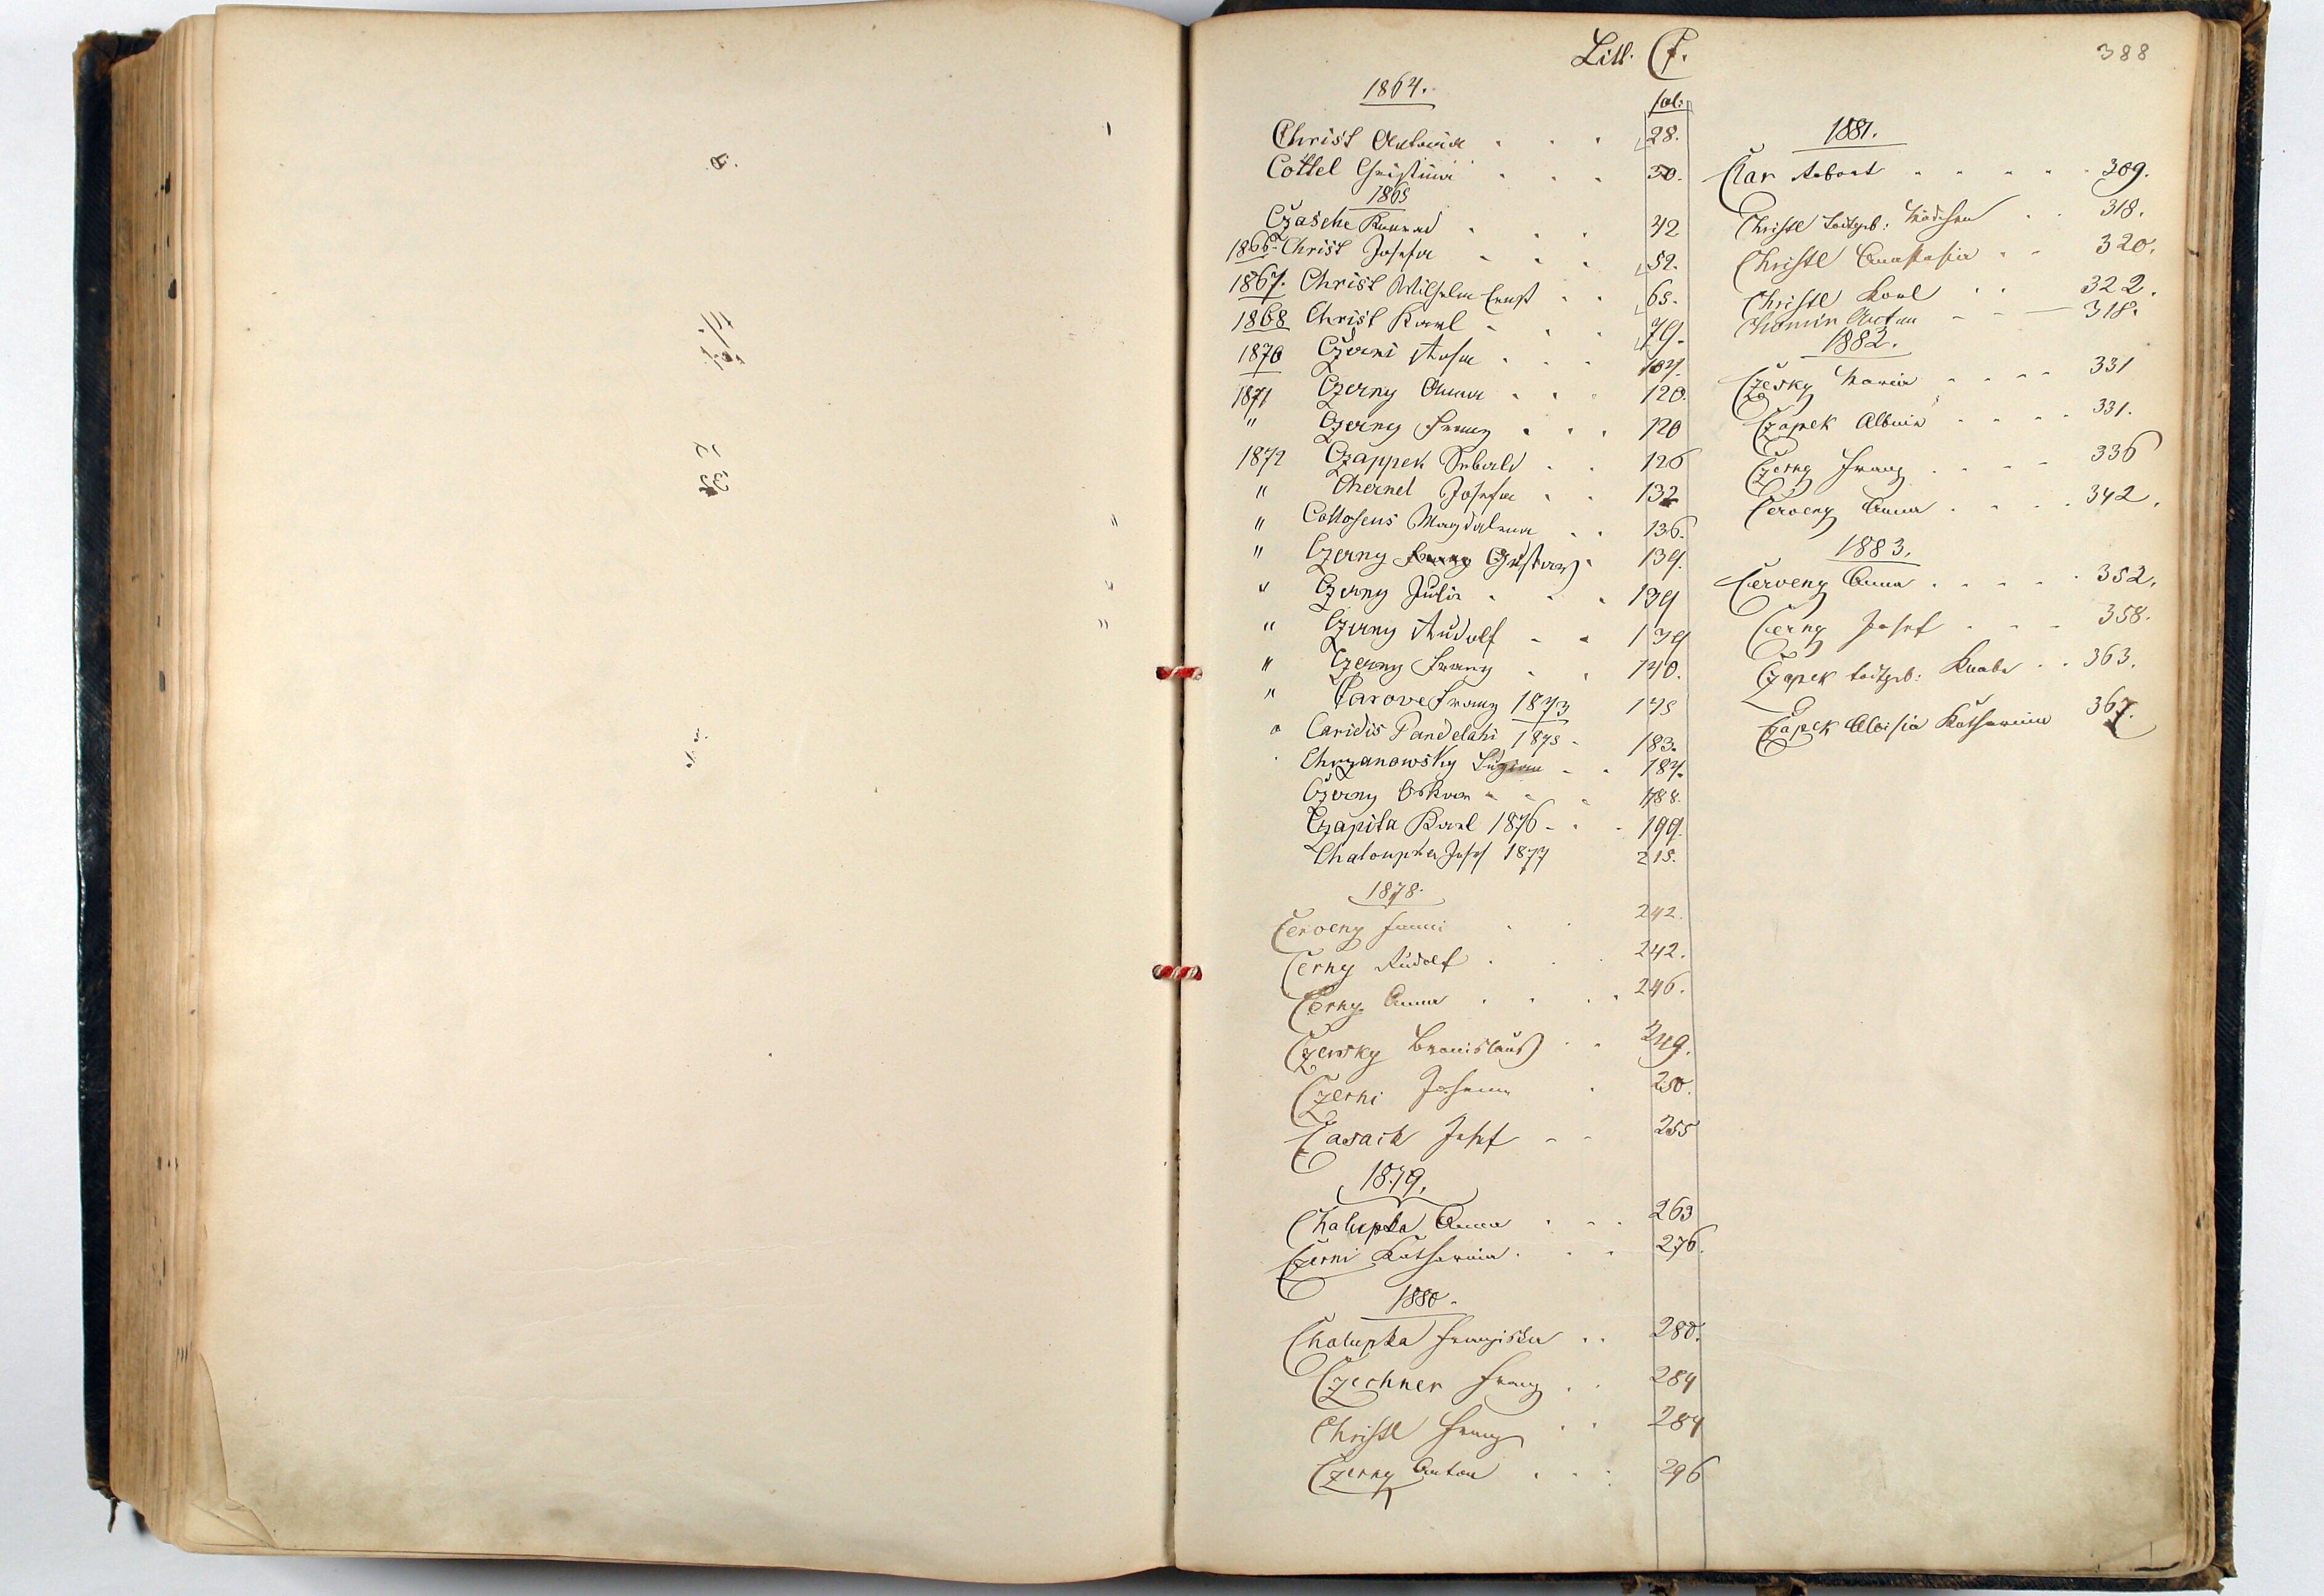 Litt. C.
388
1864.
fol:
Christ Antonia . . . 28.
Cottel Christina . . . 30.
1865
Czasche Konrad . . . 42
1866. Christ Josefa . . . 52.
1867. Christ Wilhelm Ernst . . 65.
1868 Christ Karl . . . 79.
1870 Czerni Rosa . . . 107.
1871 Czerny Anna . . . 120.
" Czerny Franz . . . 120
1872 Czappek Sebald . . 126
" Chernel Josefa . . 132
" Magdalena . . 136.
" Czerny Gustav . 139.
" Czerny Julia . . . 139
" Czerny Rudolf . . 139
" Czerny Franz . . 140.
" Carove Franz 1873 145
" Caridis Pandelahi 1875 . 183.
Chrzanowsky . . 187.
Czerny Oskar . . . 188.
Czapita Karl 1876 . . . 199.
Chaloupka Josef 1877 215.
1878.
Červeny Fanni . . 242.
Černy Rudolf . . . 242.
Černy Anna . . . . 246.
Czersky Bronislaus . . 249.
Czerni Johann . 250.
Casach Josef . . 255
1879.
Chalupka Anna . . . 263
Czerni Katharina . . . 276.
1880.
Chalupka Franziska . . 280.
Czechner Franz . . 284
Christl Franz . . 284
Czerny Anton . . . 296
1881.
Robert . . . . . 309.
Christl todtgeb: Mädchen . . 318.
Christl Anastasia . . 320.
Christl Karl . . 322.
Anton . . 318.
1882.
Czesky Maria . . . . 331
Czapek Albina . . . . 331.
Czerny Franz . . . . 336
Červeny Anna . . . . 342.
1883.
Červeny Anna . . . . . 352.
Černy Josef . . . 358.
Czapek todtgeb: Knabe . . 363.
Czapek Aloisia Katharina 367.